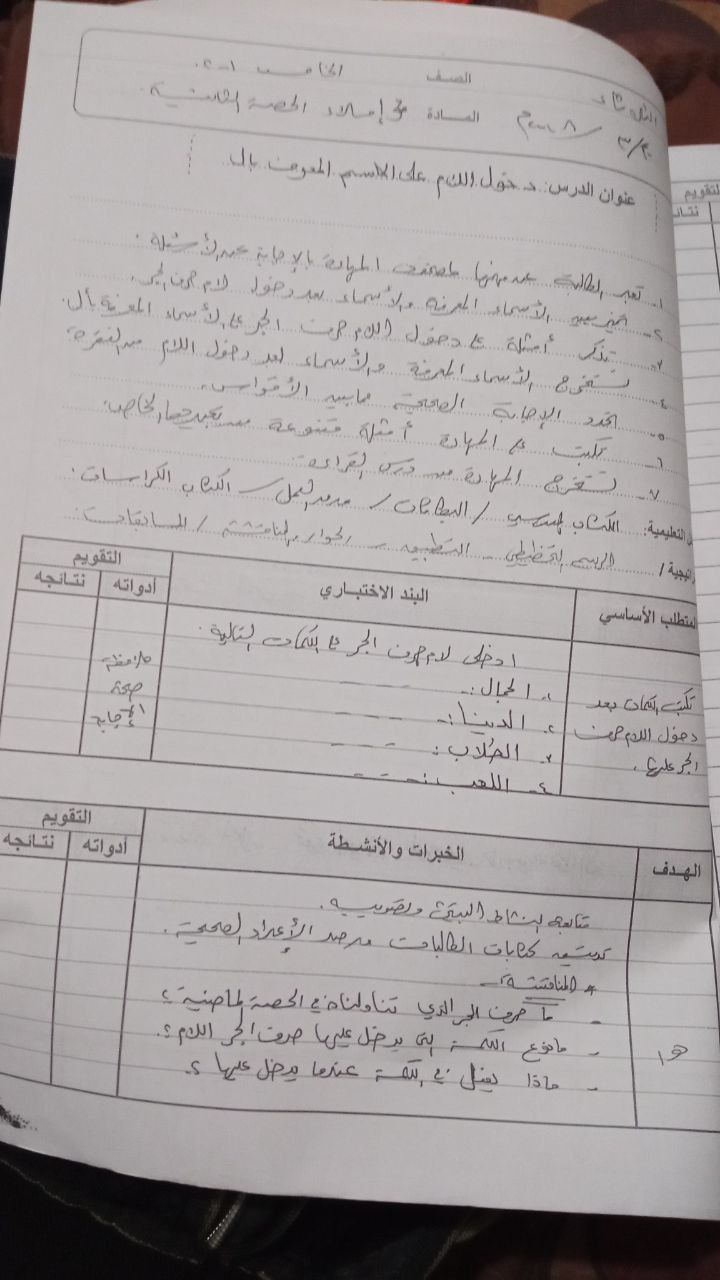 الثلاثاء الصف الخامس ١-٢
٣/٣٠ / ٢٠٠٨م المادة إملاء الحصة الثانية
عنوان الدرس: دخول اللام على الاسم المعرف بال
١- تعبر الطالبة عن مضمون المهارة بالإجابة عن الأسئلة.
٢- تميز بين الأسماء المعرفة والأسماء بعد دخول لام حرف الجر.
٣- تذكر أمثلة على دخول اللام حرف الجر على الأسماء المعرفة بأل.
٤- تستخرج الأسماء المعرفة والأسماء بعد دخول اللام من الفقرة.
٥- تحدد الإجابة الصحيحة مما بين الأقواس.
٦- تكتب على المهارة أمثلة متنوعة من تعبيرها الخاص.
٧- تستخرج المهارة من درس القراءة.
التعليمية: الكتاب المدرسي / البطاقات / الكتاب الكراسات.
الرسم التخطيطي - التطبيق - الحوار والمناقشة / المسابقات.
المتطلب الأساسي البند الاختباري التقويم
أدواته نتائجه
تكتب الكلمات بعد دخول اللام حرف الجر عليها.
ادخلي لام حرف الجر على الكلمات التالية.
١- الجمال:
٢- الدينا:
٣- الطلاب:
٤- اللعب:
ملاحظة
صحة
الإجابة
الهدف الخبرات والأنشطة التقويم
أدواته نتائجه
متابعة النشاط البيتي وتصويبه.
كتابات الطالبات ورصد الأعداد الصحيحة.
* المناقشة:
- ما حرف الجر الذي تناولناه في الحصة الماضية؟
هـ ١
- ما نوع الكلمة التي يدخل عليها حرف الجر اللام؟
- ماذا يعمل في الكلمة عندما يدخل عليها؟
التقويم